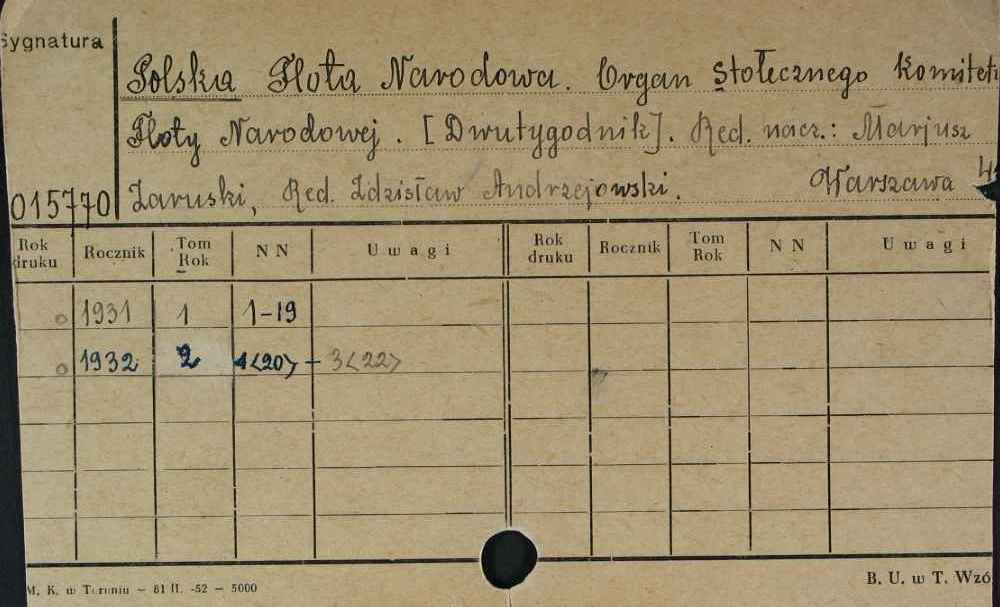 Sygnatura
Polska Flota Narodowa. Organ Stołecznego Komitetu
Floty Narodowej. [Dwutygodnik]. Red. nacz.: Marjusz
015770 Zaruski, Red. Zdzisław Andrzejowski. Warszawa 4
Rok druku Rocznik Tom Rok NN Uwagi Rok druku Rocznik Tom Rok NN Uwagi
1931 1 1-19
1932 2 1<20> - 3<22>
M. K. w Toruniu - 81 II. -52 - 5000
B. U. w T. Wzó